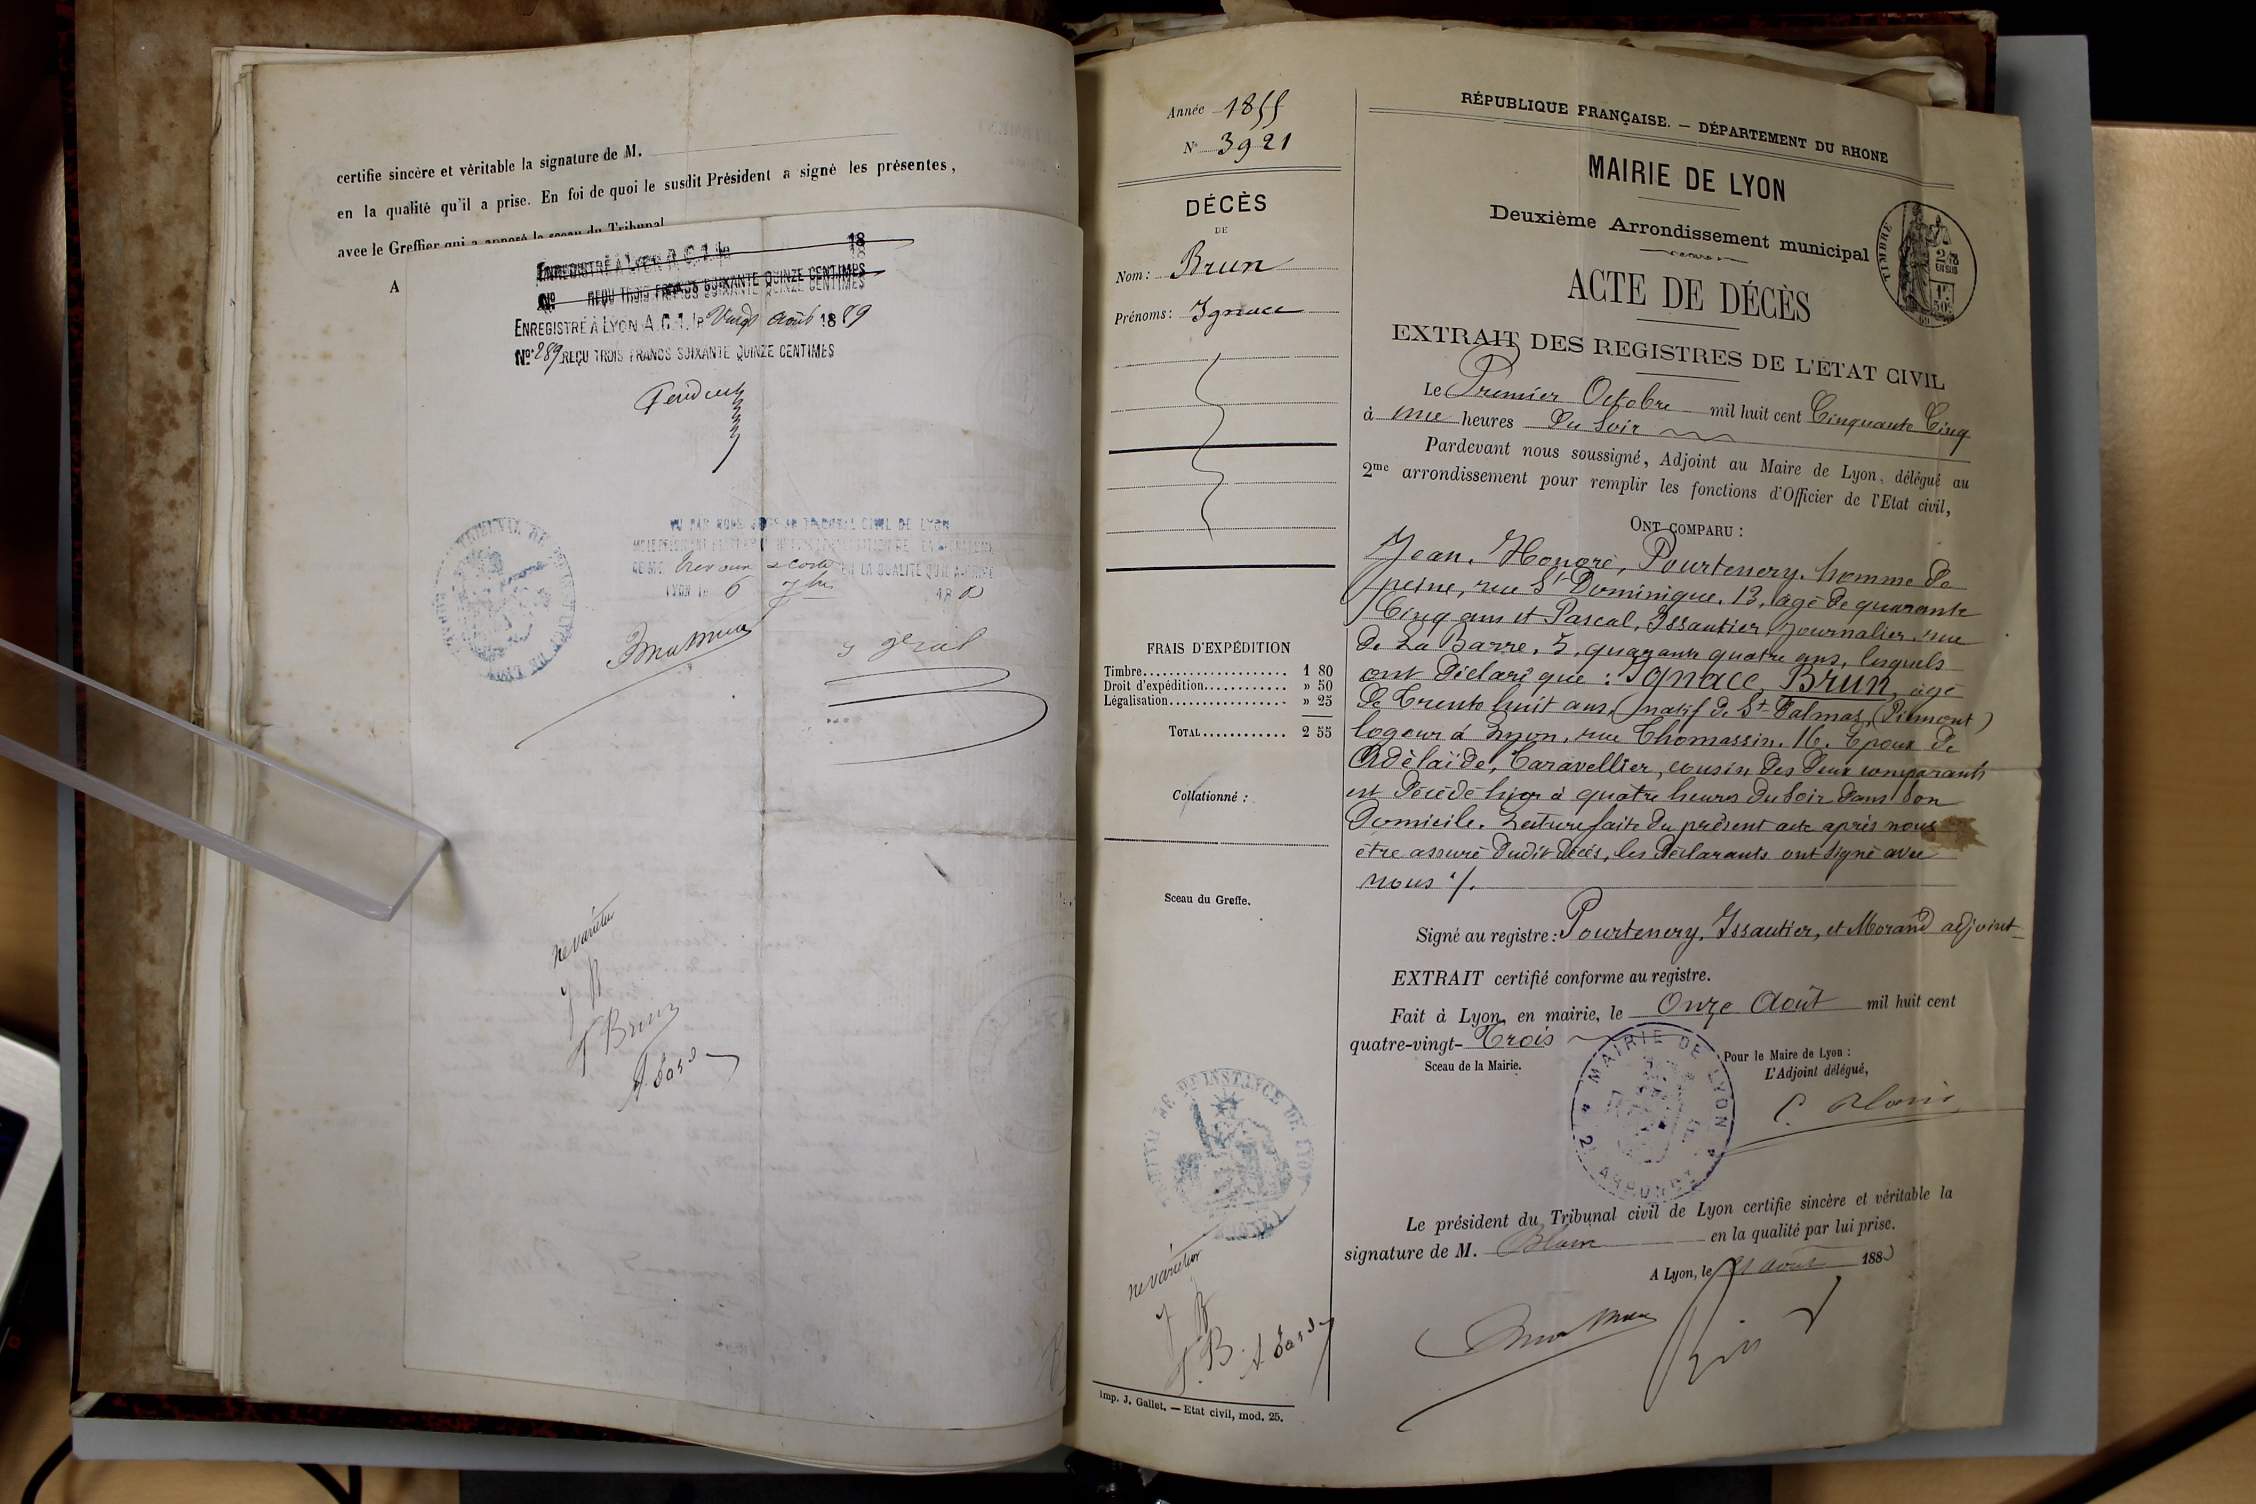 certifie sincère et véritable la signature de M.
en la qualité qu'il a prise. En foi de quoi le susdit Président a signé les présentes,
avec le Greffier qui a apposé le sceau du Tribunal
A
ENREGISTRÉ À LYON A.C.1. le 18
No REÇU TROIS FRANCS SOIXANTE QUINZE CENTIMES
ENREGISTRÉ À LYON A.C.1. le Vingt Août 1889
No 289 REÇU TROIS FRANCS SOIXANTE QUINZE CENTIMES
VU PAR NOUS TRIBUNAL CIVIL DE LYON
EN LA QUALITÉ QU'IL A PRISE
LYON le 6 7bre
ne varietur
J B
Brun
Année 1855
No 3921
DÉCÈS
DE
Nom: Brun
Prénoms: Ignace
FRAIS D'EXPÉDITION
Timbre..................... 1 80
Droit d'expédition............ » 50
Légalisation................. » 25
TOTAL............ 2 55
Collationné :
Sceau du Greffe.
INSTANCE DE LYON
(RHÔNE)
ne varietur
J B
B.
Imp. J. Gallet. — Etat civil, mod. 25.
RÉPUBLIQUE FRANÇAISE. — DÉPARTEMENT DU RHONE
MAIRIE DE LYON
Deuxième Arrondissement municipal
TIMBRE
ACTE DE DÉCÈS
EXTRAIT DES REGISTRES DE L'ÉTAT CIVIL
Le Premier Octobre mil huit cent Cinquante Cinq
à une heures du soir
Pardevant nous soussigné, Adjoint au Maire de Lyon, délégué au
2me arrondissement pour remplir les fonctions d'Officier de l'Etat civil,
ONT COMPARU :
Jean, Honoré, Pourtenery, homme de
peine, rue St Dominique, 13, âgé de quarante
Cinq ans et Pascal, Issautier, journalier, rue
de La Barre, 5, quarante quatre ans, lesquels
ont déclaré que : Ignace Brun, âgé
de trente huit ans, (natif de St Dalmas, (Piémont)
logeur à Lyon, rue Thomassin, 16, époux de
Adèlaïde, Caravellier, cousin des deux comparants
est décédé hier à quatre heures du soir dans son
Domicile. Lecture faite du présent acte après nous
être assuré dudit décès, les déclarants ont signé avec
nous %.
Signé au registre : Pourtenery, Issautier, et Morand adjoint
EXTRAIT certifié conforme au registre.
Fait à Lyon, en mairie, le Onze Août mil huit cent
quatre-vingt- Trois
Sceau de la Mairie.
Pour le Maire de Lyon :
L'Adjoint délégué,
MAIRIE DE LYON
Le président du Tribunal civil de Lyon certifie sincère et véritable la
signature de M. en la qualité par lui prise.
A Lyon, le août 1883